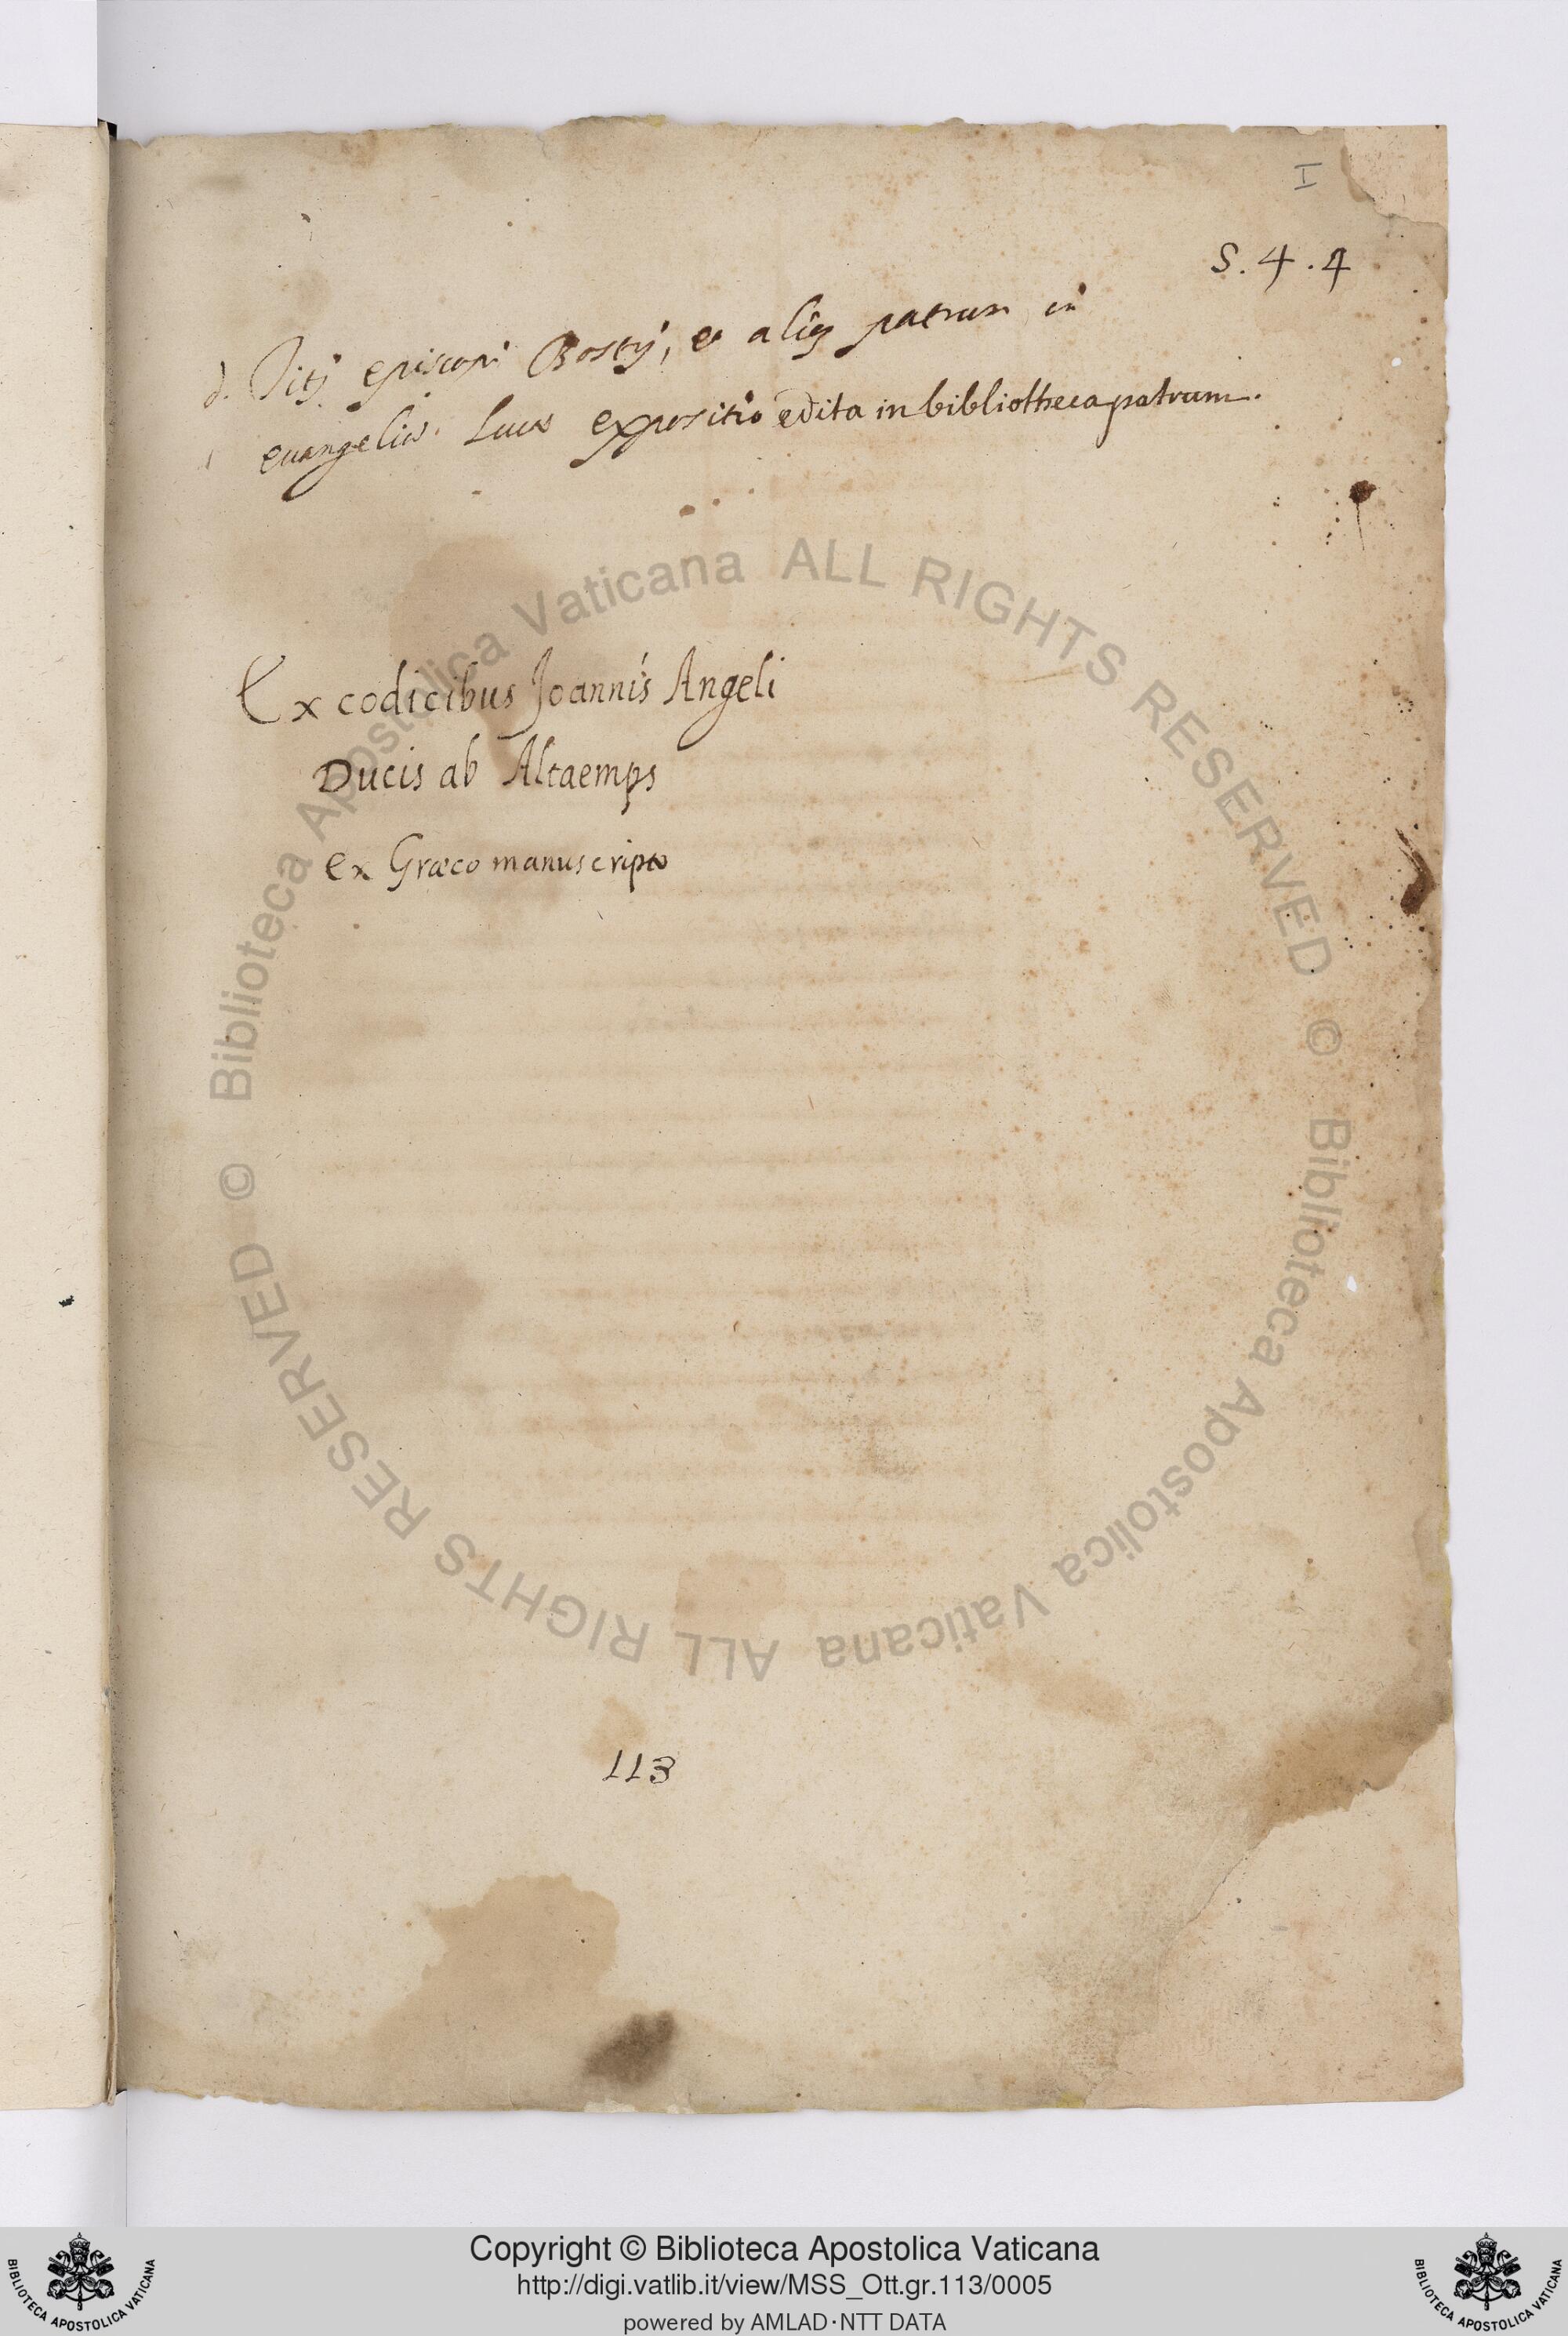 I
S. 4. 4
d. Titj episcopi Bostrj, et alior patrum in
euangeliū Lucæ expositio edita in bibliotheca patrum.
Ex codicibus Joannis Angeli
Ducis ab Altaemps
ex Græco manuscripto
113
© Biblioteca Apostolica Vaticana ALL RIGHTS RESERVED © Biblioteca Apostolica Vaticana ALL RIGHTS RESERVED
Copyright © Biblioteca Apostolica Vaticana
http://digi.vatlib.it/view/MSS_Ott.gr.113/0005
powered by AMLAD·NTT DATA
BIBLIOTECA APOSTOLICA VATICANA
BIBLIOTECA APOSTOLICA VATICANA